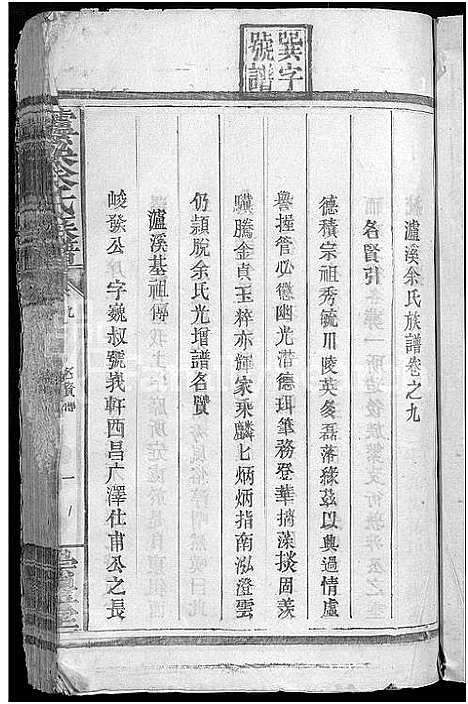 巽字號譜
瀘溪余氏族譜卷之九
名賢引
德積宗祖秀毓川陵英多磊落緣茲以興過情虛
譽握管必懲幽光潛德珥筆務登華摛藻掞固羨
驥騰金貞玉粹亦輝家乘麟匕炳炳指南泓澄雲
仍頴脫余氏光增譜名賢
瀘溪基祖傳
峻發公字巍叔號義軒西昌广澤仕甫公之長
瀘溪余氏族譜
卷九
名賢
一